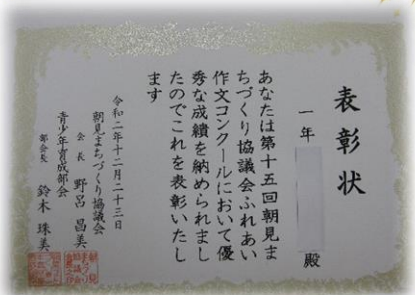 表彰状
一年
殿
あなたは第十五回朝見ま
ちづくり協議会ふれあい
作文コンクールにおいて優
秀な成績を納められまし
たのでこれを表彰いたし
ます
令和二年十二月二十三日
朝見まちづくり協議会
会長 野呂昌美
青少年育成部会
部会長 鈴木珠美